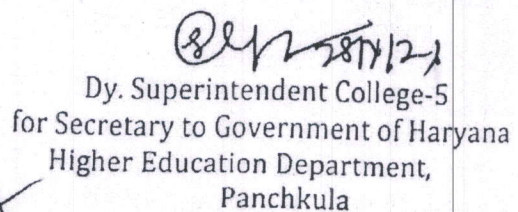 Dy. Superintendent College-5
for Secretary to Government of Haryana
Higher Education Department,
Panchkula